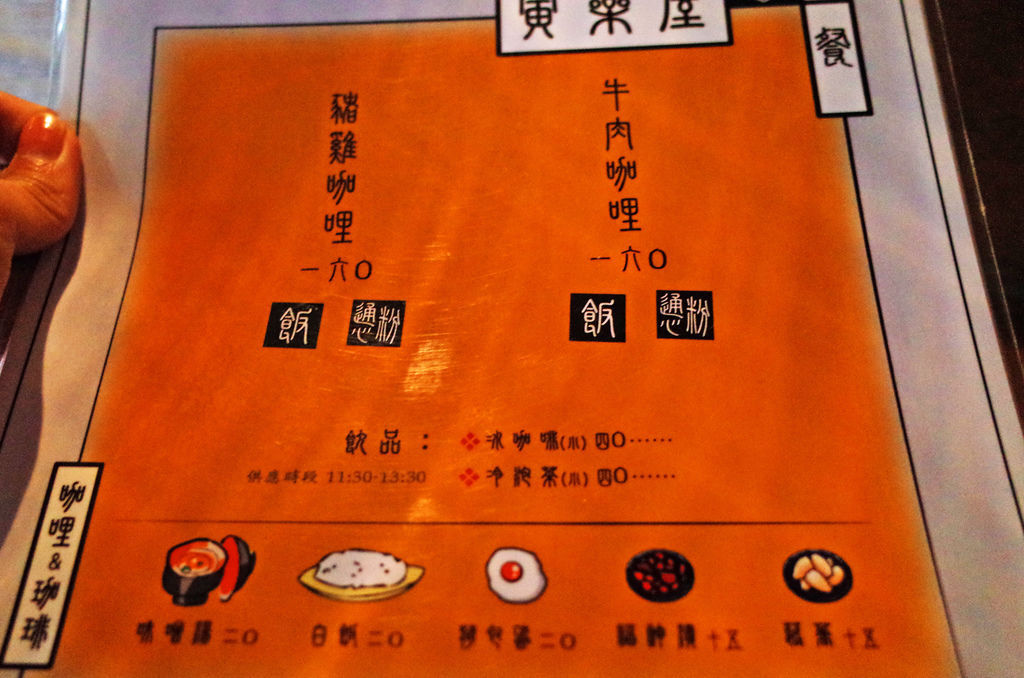 寅樂屋
餐
牛肉咖哩
一六〇
飯
通粉
豬雞咖哩
一六〇
飯
通粉
飲品：
冰咖啡(小) 四〇⋯⋯
供應時段 11:30-13:30
冷泡茶(小) 四〇⋯⋯
味噌湯 二〇
白飯 二〇
二〇
福神漬 十五
十五
咖哩&珈琲